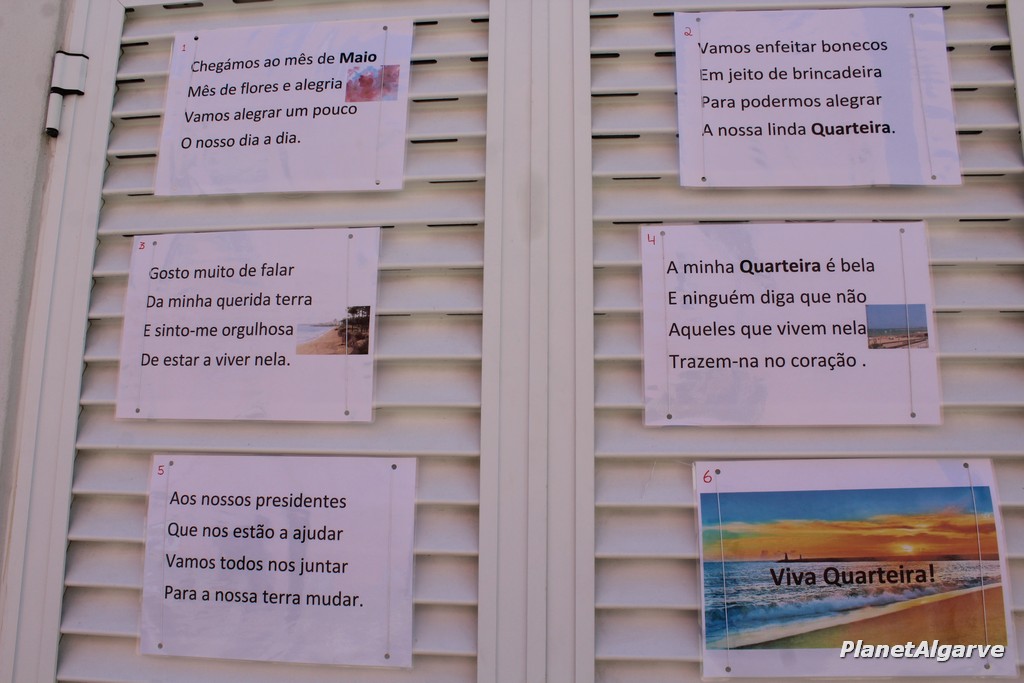 1
Chegámos ao mês de Maio
Mês de flores e alegria
Vamos alegrar um pouco
O nosso dia a dia.
2
Vamos enfeitar bonecos
Em jeito de brincadeira
Para podermos alegrar
A nossa linda Quarteira.
3
Gosto muito de falar
Da minha querida terra
E sinto-me orgulhosa
De estar a viver nela.
4
A minha Quarteira é bela
E ninguém diga que não
Aqueles que vivem nela
Trazem-na no coração .
5
Aos nossos presidentes
Que nos estão a ajudar
Vamos todos nos juntar
Para a nossa terra mudar.
6
Viva Quarteira!
PlanetAlgarve